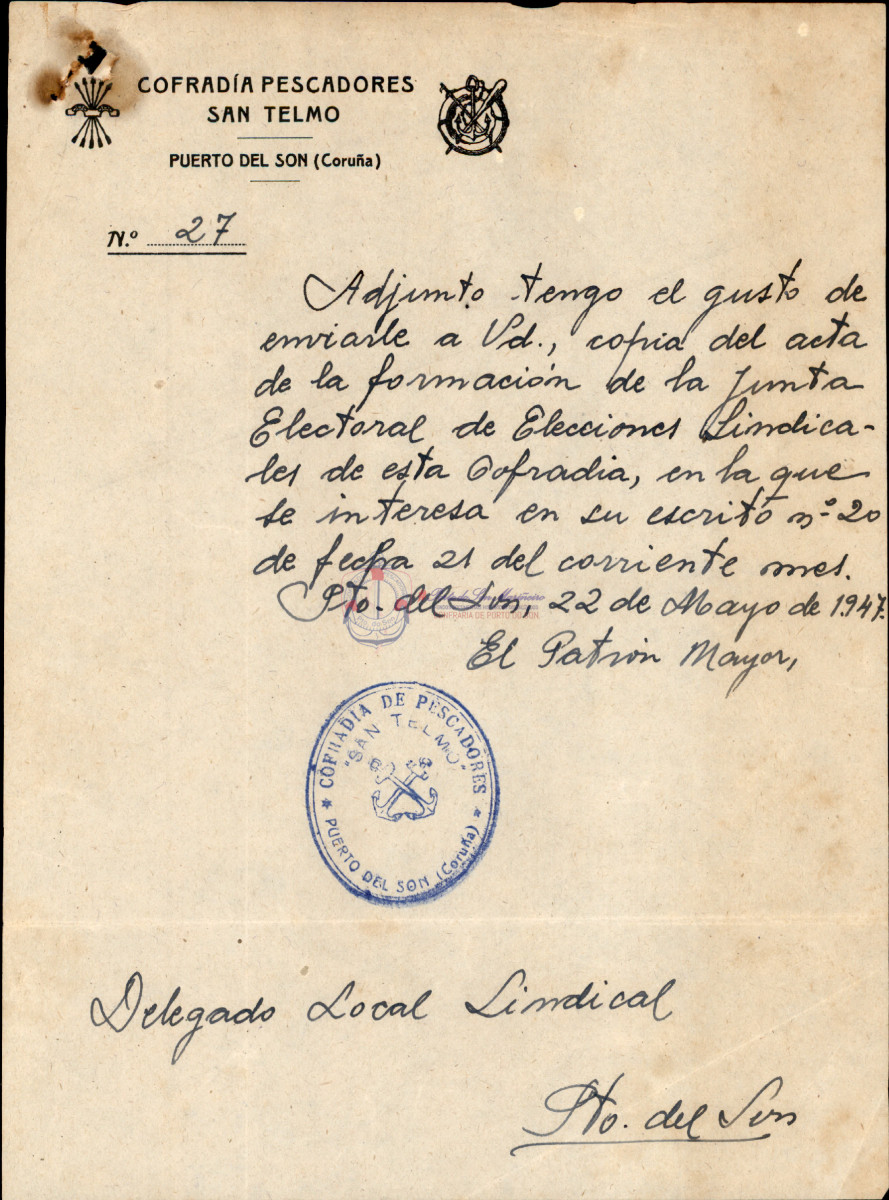 COFRADÍA PESCADORES
SAN TELMO
PUERTO DEL SON (Coruña)
N.º 27
Adjunto tengo el gusto de
enviarle a Vd., copia del acta
de la formación de la Junta
Electoral de Elecciones Sindica-
les de esta Cofradia, en la que
se interesa en su escrito nº 20
de fecha 21 del corriente mes.
Pto. del Son, 22 de Mayo de 1.947.
El Patrón Mayor,
COFRADIA DE PESCADORES
"SAN TELMO"
PUERTO DEL SON (Coruña)
Delegado Local Sindical
Pto. del Son